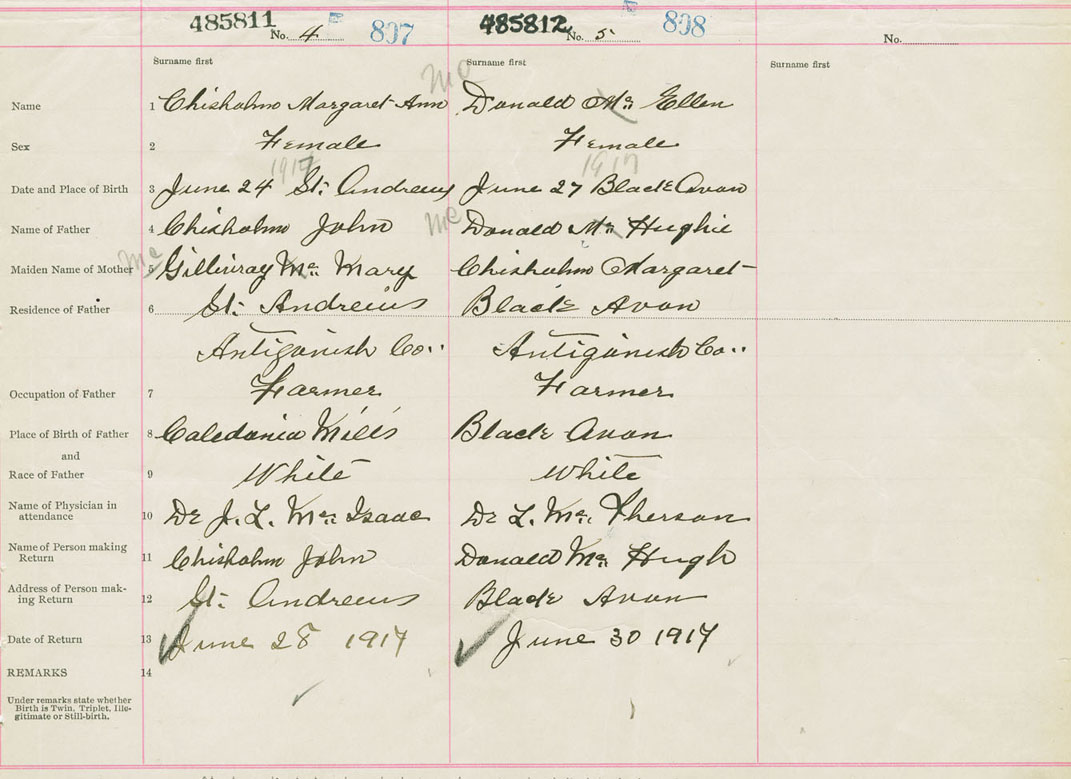 485811 485812
No. 4 807 No. 5 808 No.
Surname first Mc Surname first Surname first
Name 1 Chisholm Margaret Ann Donald Mc Ellen
Sex 2 Female Female
1917 1917
Date and Place of Birth 3 June 24 St. Andrews June 27 Black Avon
Name of Father 4 Chisholm John Mc Donald Mc Hughie
Maiden Name of Mother Mc 5 Gillivray Mc Mary Chisholm Margaret
Residence of Father 6 St. Andrews Black Avon
Antigonish Co.. Antigonish Co..
Occupation of Father 7 Farmer Farmer
Place of Birth of Father 8 Caledonia Mills Black Avon
and
Race of Father 9 White White
Name of Physician in
attendance 10 Dr J. L. Mc Isaac Dr L. Mc. Pherson
Name of Person making
Return 11 Chisholm John Donald Mc Hugh
Address of Person mak-
ing Return 12 St. Andrews Black Avon
Date of Return 13 June 28 1917 June 30 1917
REMARKS 14
Under remarks state whether
Birth is Twin, Triplet, Ille-
gitimate or Still-birth.